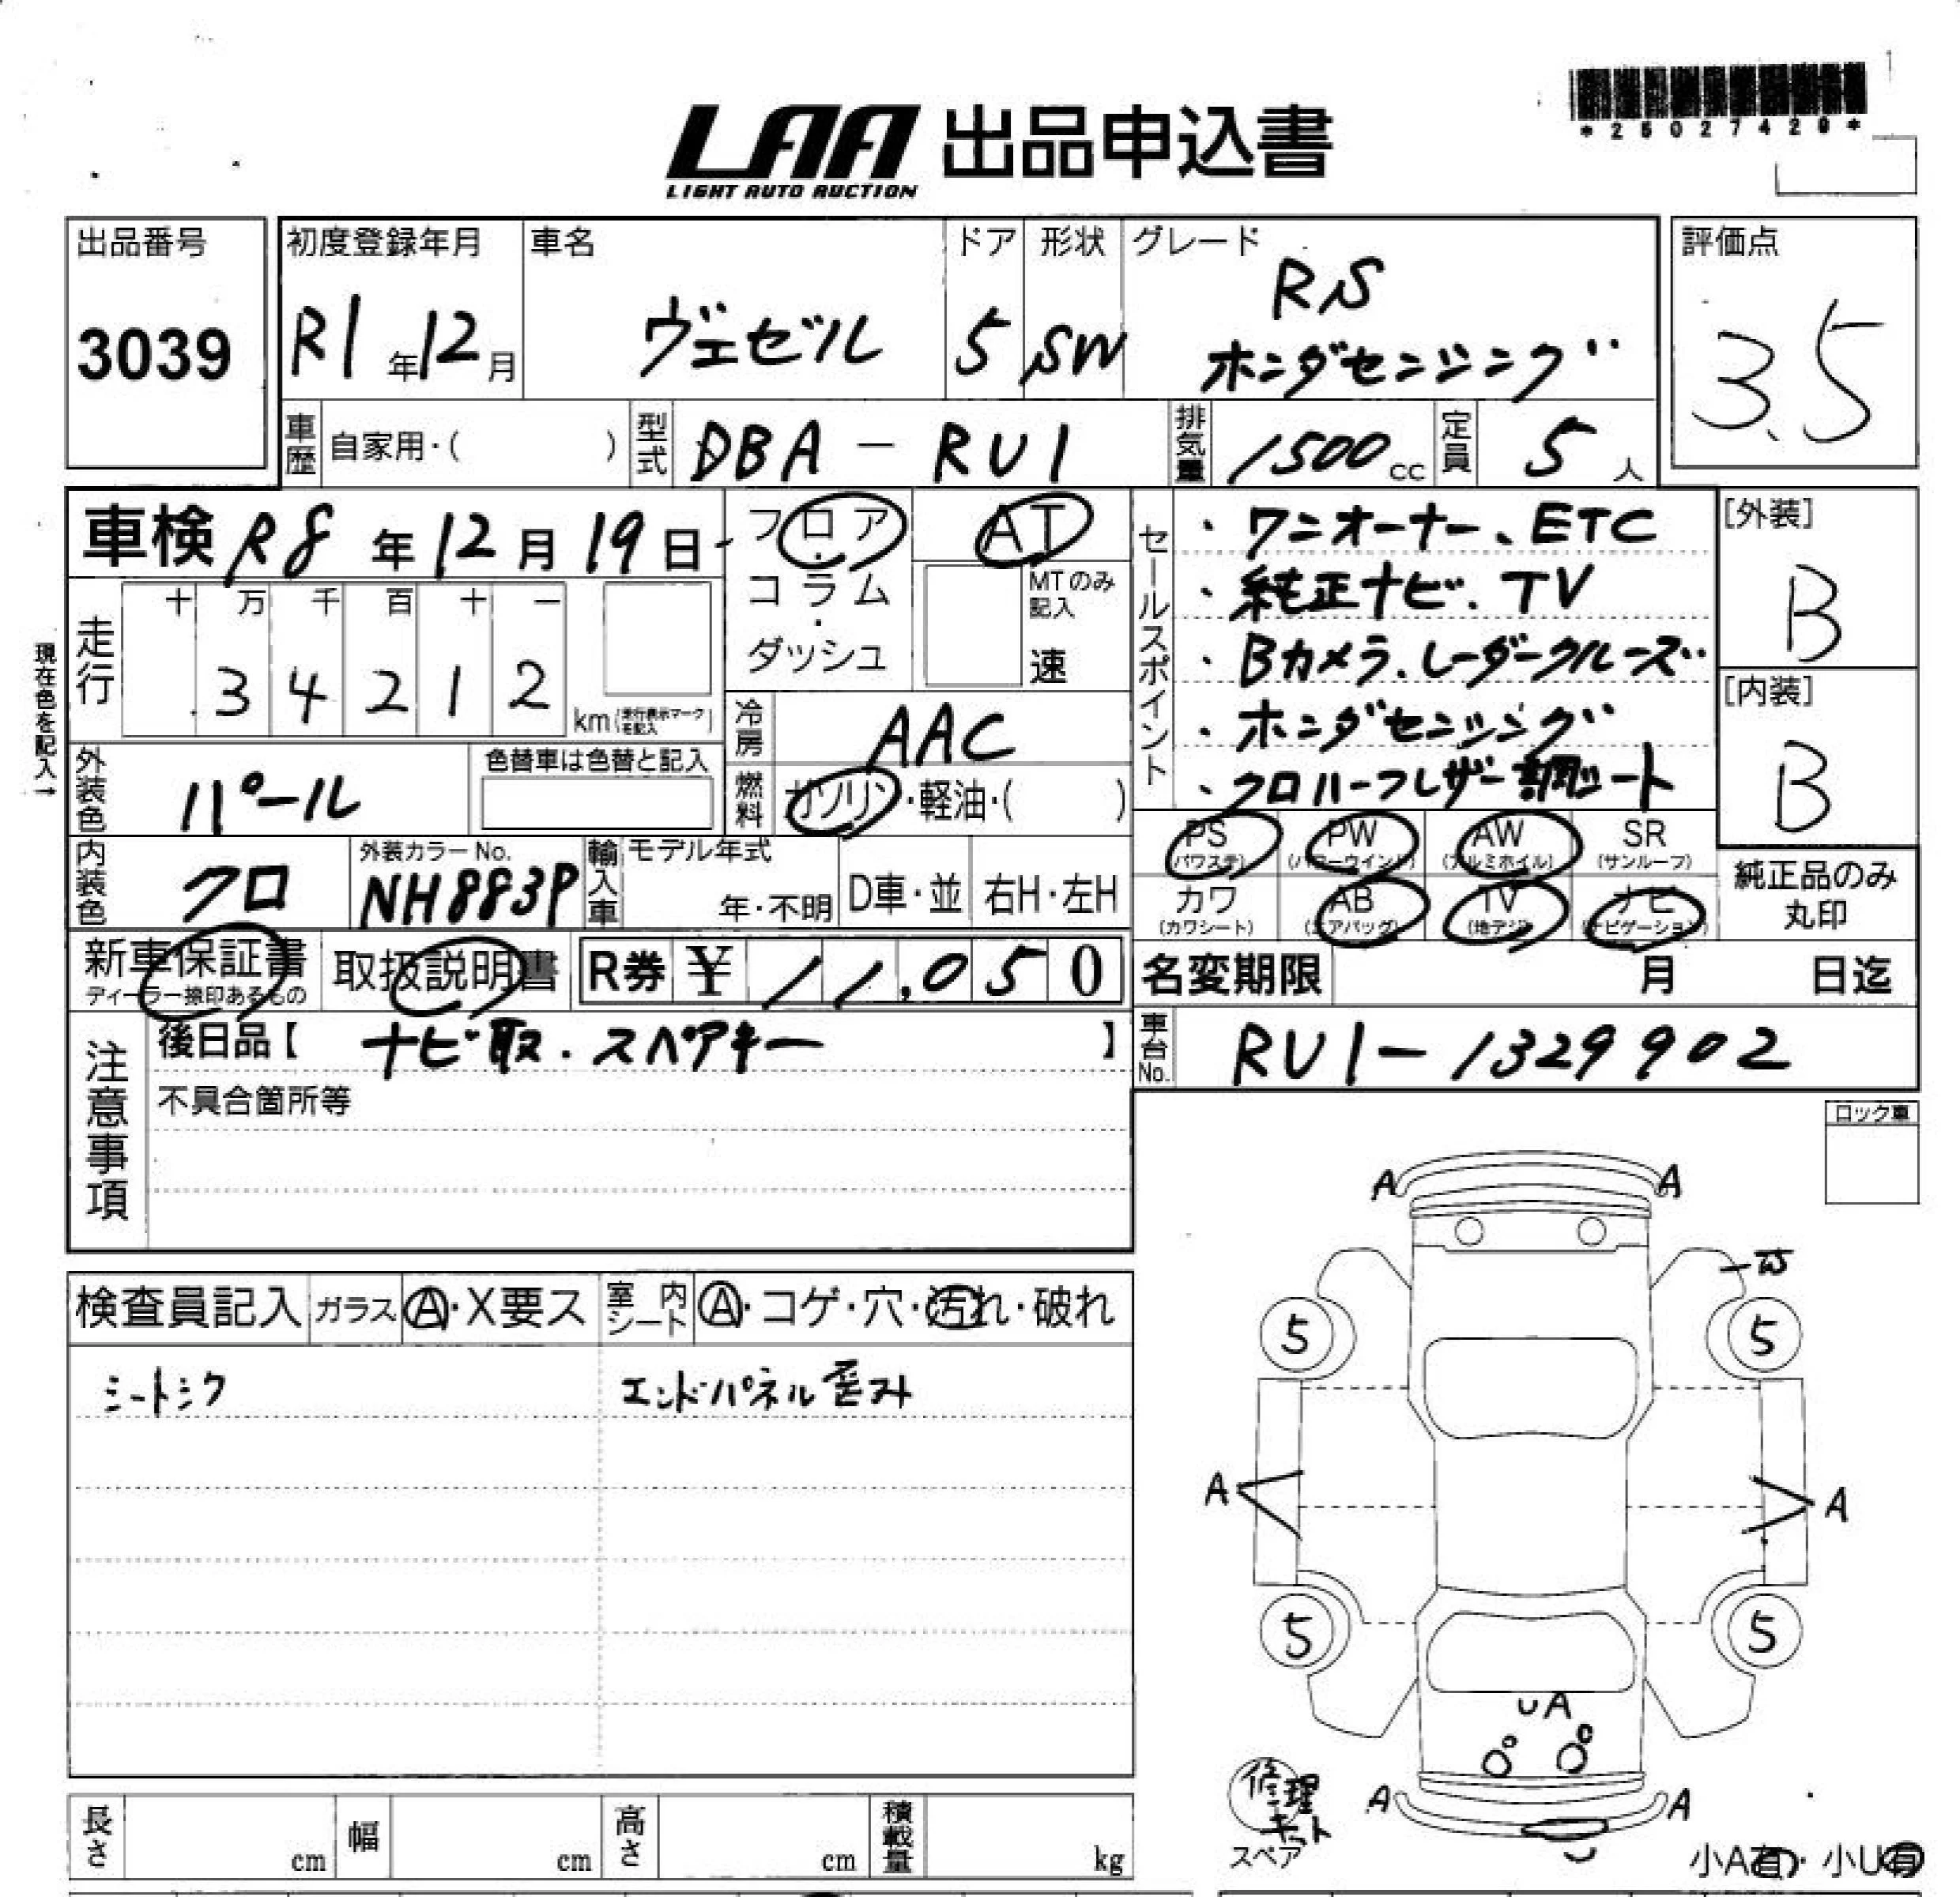 *25027420*
LAA 出品申込書
LIGHT AUTO AUCTION
出品番号
3039
初度登録年月
R1年12月
車名
ヴェゼル
ドア
5
形状
SW
グレード
RS
ホンダセンシング
評価点
3.5
車歴 自家用・( )
型式 DBA-RU1
排気量 1500cc
定員 5人
車検 R8年12月19日
フロア・コラム・ダッシュ
AT
MTのみ記入
速
セールスポイント
・ワンオーナー、ETC
・純正ナビ、TV
・Bカメラ、レーダークルーズ
・ホンダセンシング
・クロハーフレザー調シート
[外装]
B
[内装]
B
現在色を記入→
走行
十 万 千 百 十 一
3 4 2 1 2
km(走行表示マークを記入)
冷房 AAC
燃料 ガソリン・軽油・( )
外装色 パール
色替車は色替と記入
内装色 クロ
外装カラーNo.
NH883P
輸入車 モデル年式
年・不明
D車・並
右H・左H
PS (パワステ)
PW (パワーウインド)
AW (アルミホイル)
SR (サンルーフ)
カワ (カワシート)
AB (エアバッグ)
TV (地デジ)
ナビ (ナビゲーション)
純正品のみ丸印
新車保証書
ディーラー捺印あるもの
取扱説明書
R券 ¥ 11,050
名変期限 月 日迄
注意事項
後日品【ナビ取.スペアキー】
不具合箇所等
車台No. RU1-1329902
ロック車
検査員記入
ガラス A・X要ス
室内シート A・コゲ・穴・汚れ・破れ
シートシワ
エンドパネル
A A
5 5
A A
5 5
UA
A A
修理キット
スペア
小A有・小U有
長さ cm
幅 cm
高さ cm
積載量 kg